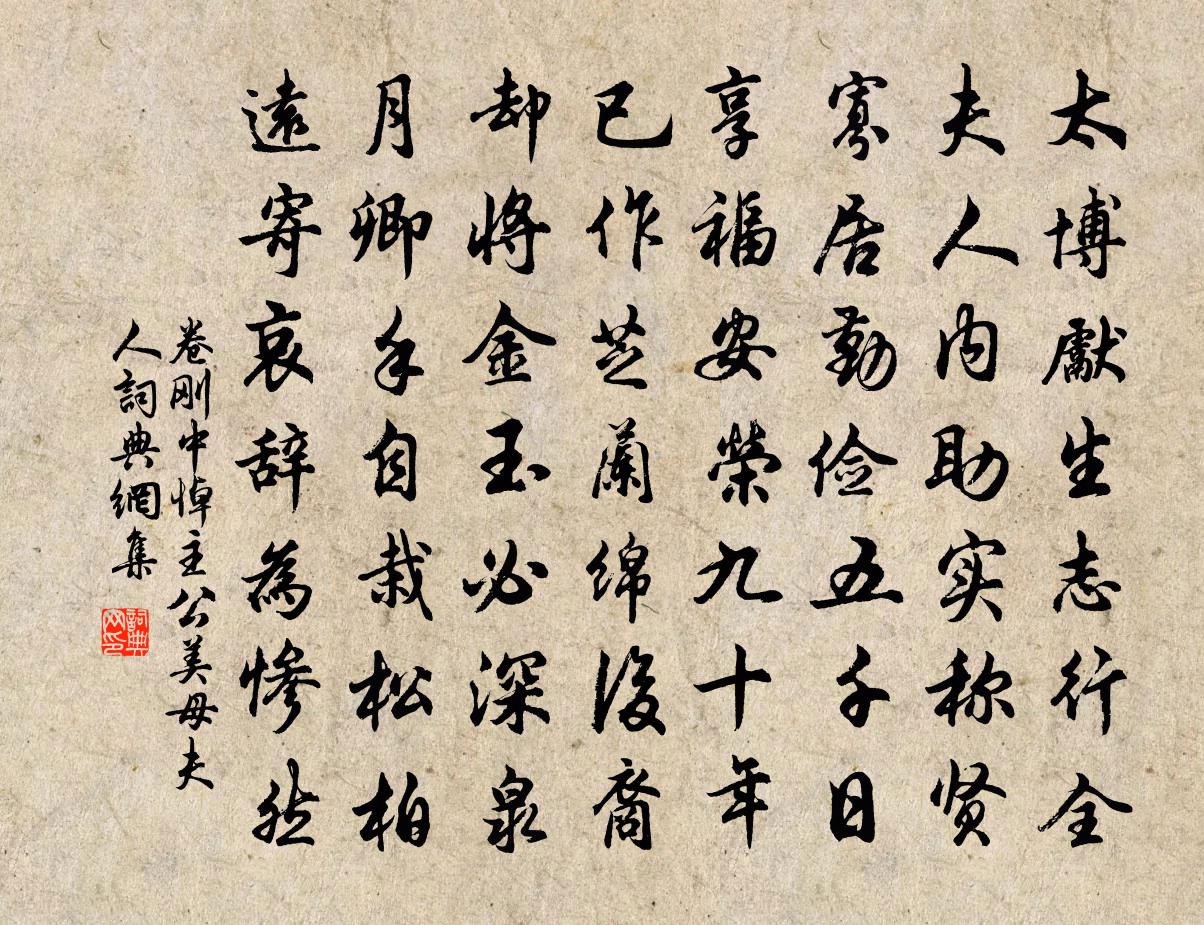 太博獻生志行全
夫人内助实称贤
寡居勤俭五千日
享福安榮九十年
已作芝蘭綿後裔
却将金玉必深泉
月卿手自栽松柏
遠寄哀辞為惨然
卷刚中悼主公美母夫
人詞典網集
詞典
网印